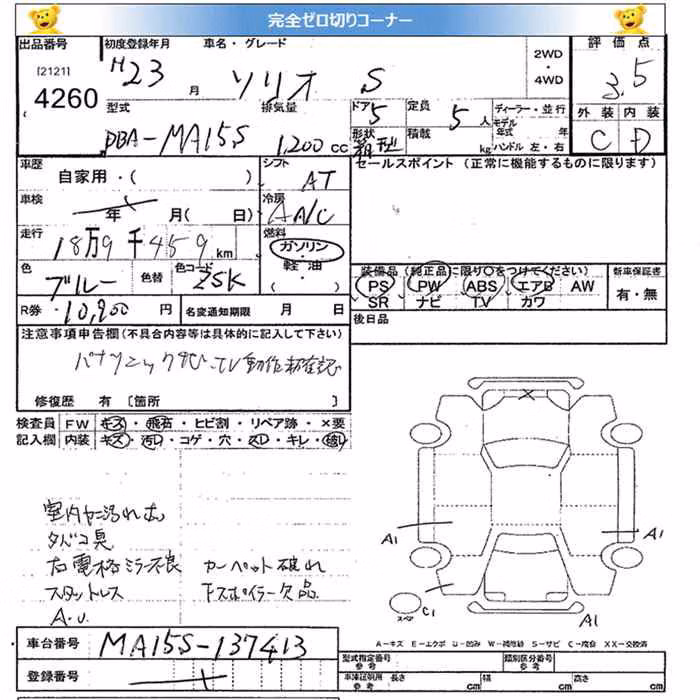 完全ゼロ切りコーナー
出品番号 初度登録年月 車名・グレード 評価点
[2121] 4260 H23 月 ソリオ S 2WD・4WD 3.5
型式 排気量 ドア 定員 ディーラー・並行 外装 内装
DBA-MA15S 1,200 cc 5 5人 モデル年式 年 C D
形状 箱型 積載 kg ハンドル 左・右
車歴 自家用・( ) シフト AT セールスポイント (正常に機能するものに限ります)
車検 年 月( 日) 冷房 AA/C
走行 18万9千459km 燃料 ガソリン・軽油・( )
色 ブルー 色替 色コード ZSK
装備品(純正品に限り〇をつけてください) 新車保証書
PS PW ABS エアB AW 有・無
SR ナビ TV カワ
R券 10,900円 名変通知期限 月 日 後日品
注意事項申告欄(不具合内容等は具体的に記入して下さい)
パナソニックナビ、TV動作未確認
修復歴 有 〔箇所 〕
検査員 FW キズ・飛石・ヒビ割・リペア跡・×要
記入欄 内装 キズ・汚レ・コゲ・穴・スレ・キレ・破レ
室内ヤニ汚れ大
タバコ臭
右電格ミラー不良 カーペット破れ
スタットレス 下スポイラー欠品
A.U.
A1 A1
スペア C1 A1
A-キズ E-エクボ U-凹み W-補修跡 S-サビ C-腐食 XX-交換済
車台番号 MA15S-137413
型式指定番号 類別区分番号
登録番号 車庫証明用 長さ cm 幅 cm 高さ cm